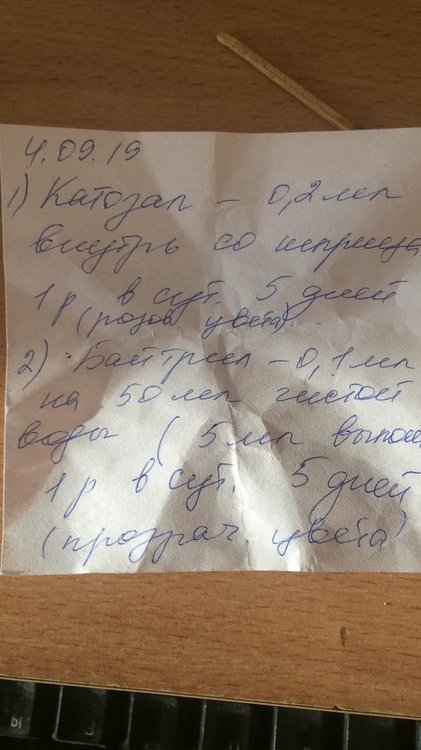 4.09.19
1) Катозал – 0,2 мл
внутрь со шприца
1 р в сут. 5 дней
(розов. цвета).
2) Байтрил – 0,1 мл
на 50 мл чистой
воды ( 5 мл выпои
1 р в сут. 5 дней
(прозрач. цвета)
Ы